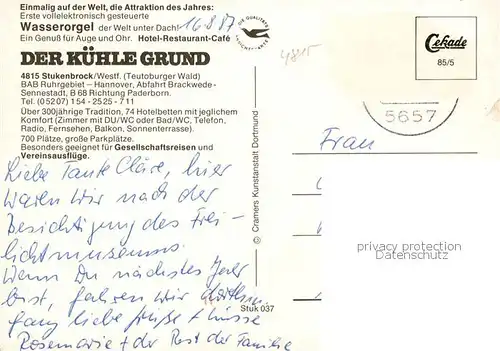 Einmalig auf der Welt, die Attraktion des Jahres:
Erste vollelektronisch gesteuerte
Wasserorgel der Welt unter Dach!
Ein Genuß für Auge und Ohr. Hotel-Restaurant-Café
16.8.87
DER KÜHLE GRUND
4815 Stukenbrock/Westf. (Teutoburger Wald)
BAB Ruhrgebiet – Hannover, Abfahrt Brackwede-
Sennestadt, B 68 Richtung Paderborn.
Tel. (05207) 154 - 2525 - 711
Über 300jährige Tradition, 74 Hotelbetten mit jeglichem
Komfort (Zimmer mit DU/WC oder Bad/WC, Telefon,
Radio, Fernsehen, Balkon, Sonnenterrasse).
700 Plätze, große Parkplätze.
Besonders geeignet für Gesellschaftsreisen und
Vereinsausflüge.
Liebe Tante Cläre, hier
waren wir nach der
Besichtigung des Frei-
lichtmuseums.
Wenn Du nächstes
bist, fahren wir dorthin.
ganz liebe Grüße + Küsse
Rosemarie + der Rest der Familie
© Cramers Kunstanstalt Dortmund
Stuk 037
4815
Cekade
85/5
5657
Frau
privacy protection
Datenschutz